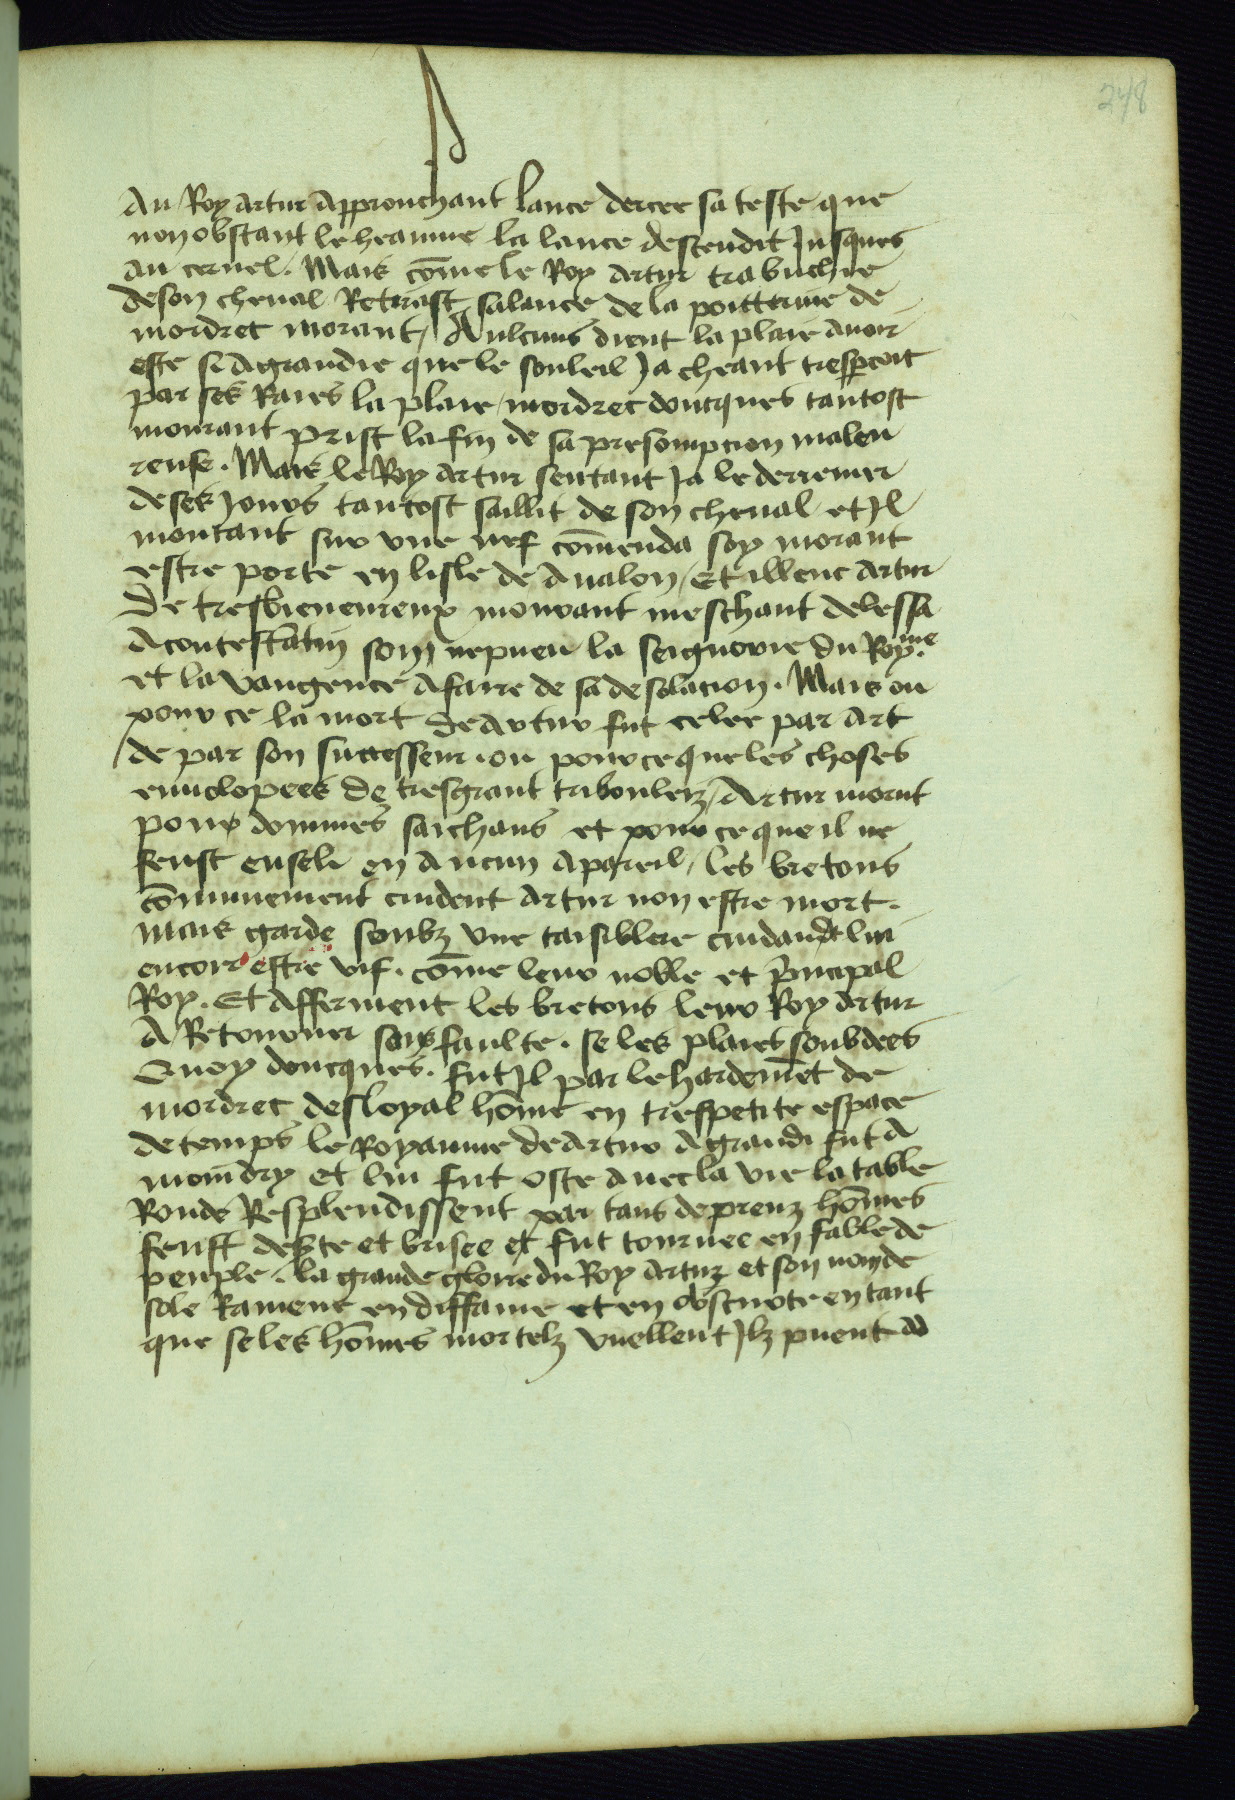 248
Au Roy artur Approuchant lance dercee sa teste que
non obstant le heaume la lance descendit Jusques
au ceruel. Mais cōme le Roy Artur trabuchie
de son cheual Retirast sa lance de la poitterine de
mordret morant / Aulcuns dient la plaie auoir
este si Agrandie que le souleil Ja cheant tresp̲coit
par ses Raies la plaie / mordret doncques tantost
mourant prist la fin de sa presompcion maleu
reuse. Mais le Roy Artur sentant Ja le derrenier
de ses Jours tantost saillit de son cheual et Jl
montant sur vne nef cōmenda soy morant
estre porte en lisle de Aualon / Et illenc Artur
De tresbieneureux mourant meschant delessa
A contestatin son nepueu la seignorie du Roy.me
et la vangence A faire de sa desolacion. Mais ou
pour ce la mort de Artur fut celee par Art
de par son successeur. ou pour ce que les choses
enuelopees de tresgrant triboulez / Artur morut
pour dommes saichans et pour ce que il ne
feust enseli en Aucun Apareil / les bretons
cōmunement cuident Artur non estre mort.
mais garde soubz vne taisiblete cuidandt lui
encore estre vif. cōme leur noble et p̄ncipal
Roy. Et Afferment les bretons leur Roy Artur
A Retourner sans faulte. se les plaies soubdees
Quoy doncques. fut Jl par le hardemēt de
mordret desloyal hōme en trespetite espace
de temps le Royaume de Artur Agrandi fut A
moindry et lui fut oste auec la vie la table
Ronde Resplendissent par tans de preuz hōmes
feust deste et brisee et fut tournee en fable de
peuple. la grande gloire du Roy Artur et son nom de
sole Ramene en diffame et en obscurte en tant
que se les hōmes mortelz vuellent Jlz puent